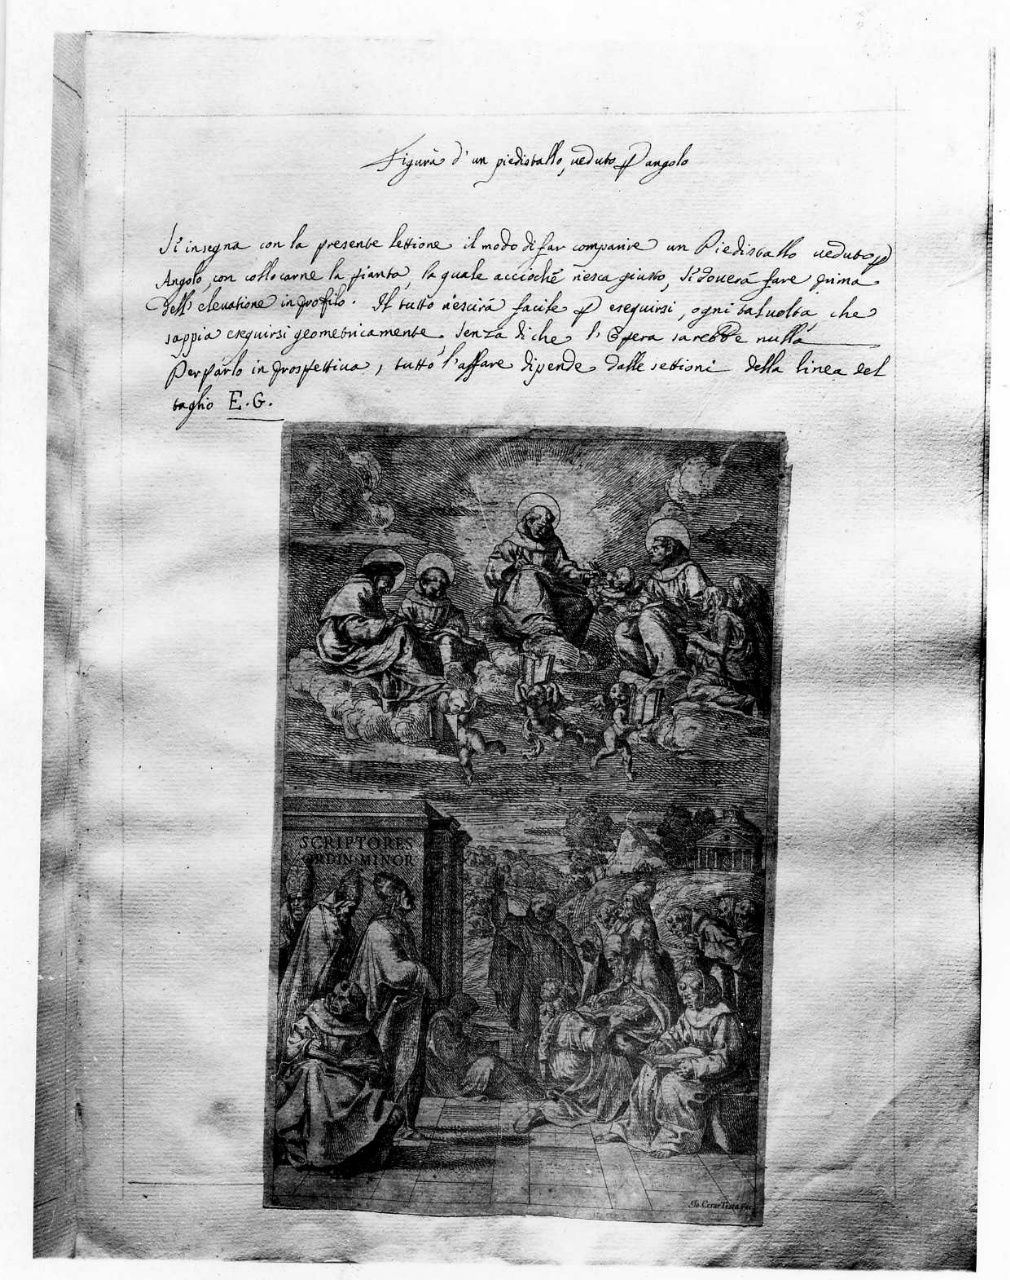 Figura d'un piedistallo, ueduto p angolo
Si insegna con la presente lettione il modo di far comparire un Piedistallo ueduto p
Angolo, con collocarne la pianta, la quale acciochè riesca giusta, si douerà fare prima
dell'eleuatione in profilo. Il tutto riescirà facile p eseguirsi, ogni tal uolta che
sappia eseguirsi geometricamente senza di che l'Opera sarebbe nulla
Per farlo in prospettiua, tutto l'affare dipende dalle settioni della linea del
taglio E.G.
SCRIPTORES
ORDIN MINOR
Io. Cesar Testa